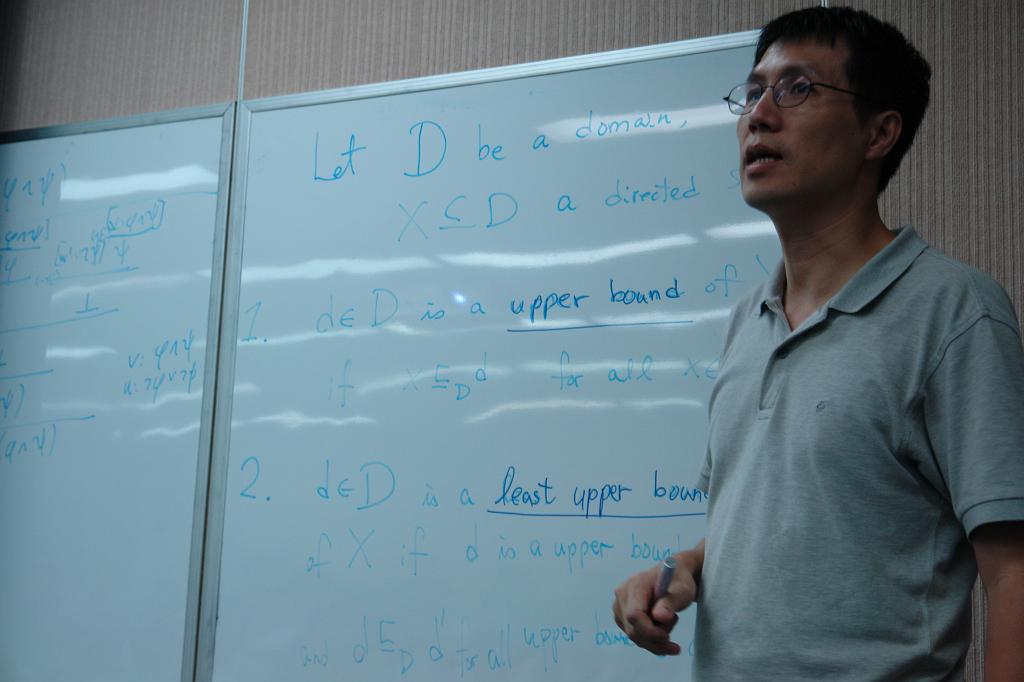 φ∧ψ)
φ∧ψ]
ψ
⊥
v: φ∧ψ
u: ¬φ∨¬ψ
ψ)
(φ∧ψ)
Let D be a domain,
X ⊆ D a directed
1. d∈D is a upper bound of
if x ⊑_D d for all x∈
2. d∈D is a least upper boun
of X if d is a upper boun
and d ⊑_D d' for all upper boun